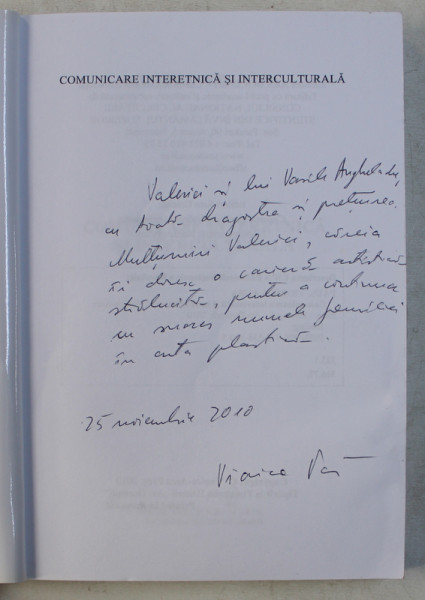 COMUNICARE INTERETNICĂ ȘI INTERCULTURALĂ
Valerici și lui Vasile
cu toată dragostea și prețuirea.
Mulțumiri Valerici, căreia
îi doresc o carieră artistică
strălucită, pentru a continua
cu succes numele familiei
în arta plastică.
25 noiembrie 2010
Viorica